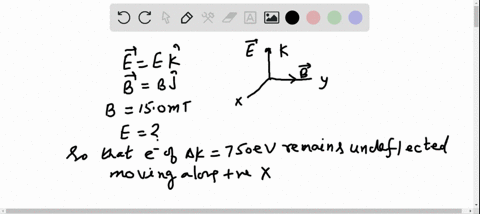 E⃗ = E k̂
B⃗ = B ĵ
B = 15.0mT
E = ?
E⃗ K
B⃗
y
x
So that e⁻ of ΔK = 750eV remains undeflected
moving along +ve X
A